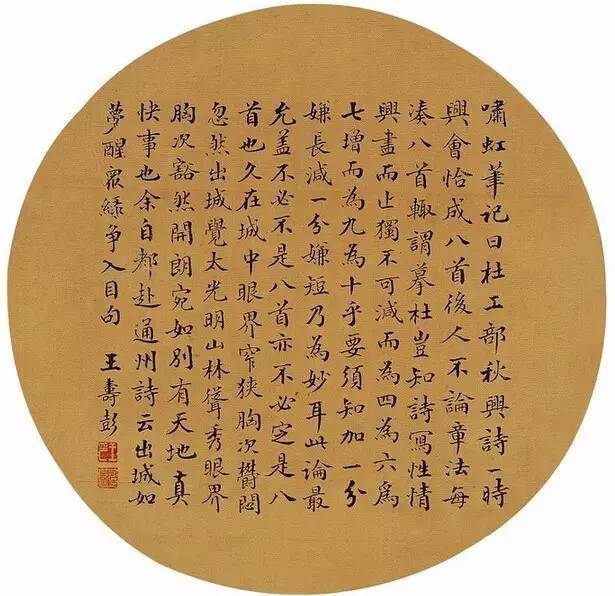 嘯虹筆記曰杜工部秋興詩一時
興會恰成八首後人不論章法每
湊八首輒謂摹杜豈知詩寫性情
興盡而止獨不可減而為四為六爲
七增而為九為十乎要須知加一分
嫌長減一分嫌短乃為妙耳此論最
允盖不必不是八首亦不必定是八
首也久在城中眼界窄狹胸次鬱悶
忽然出城覺太光明山林聳秀眼界
胸次豁然開朗宛如別有天地真
快事也余自都赴通州詩云出城如
夢醒眾綠爭入目句 王壽彭